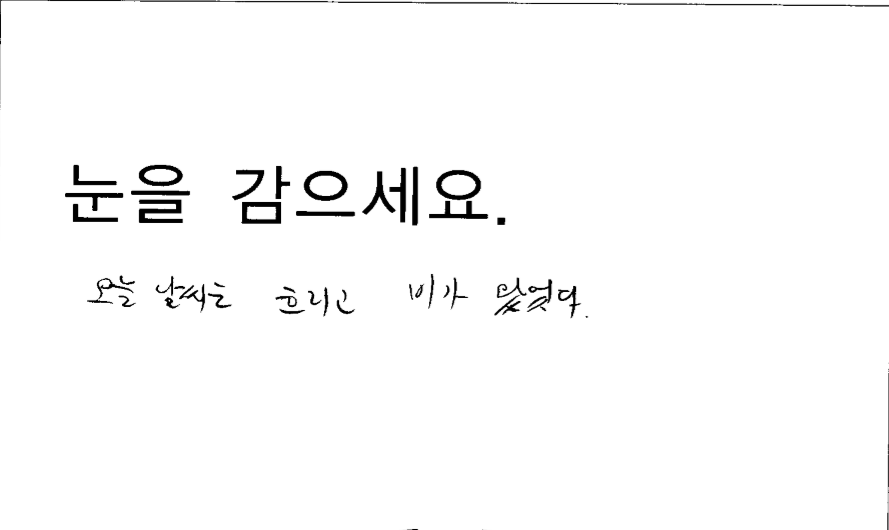 눈을 감으세요.
오늘 날씨는 흐리고 비가 있었다.